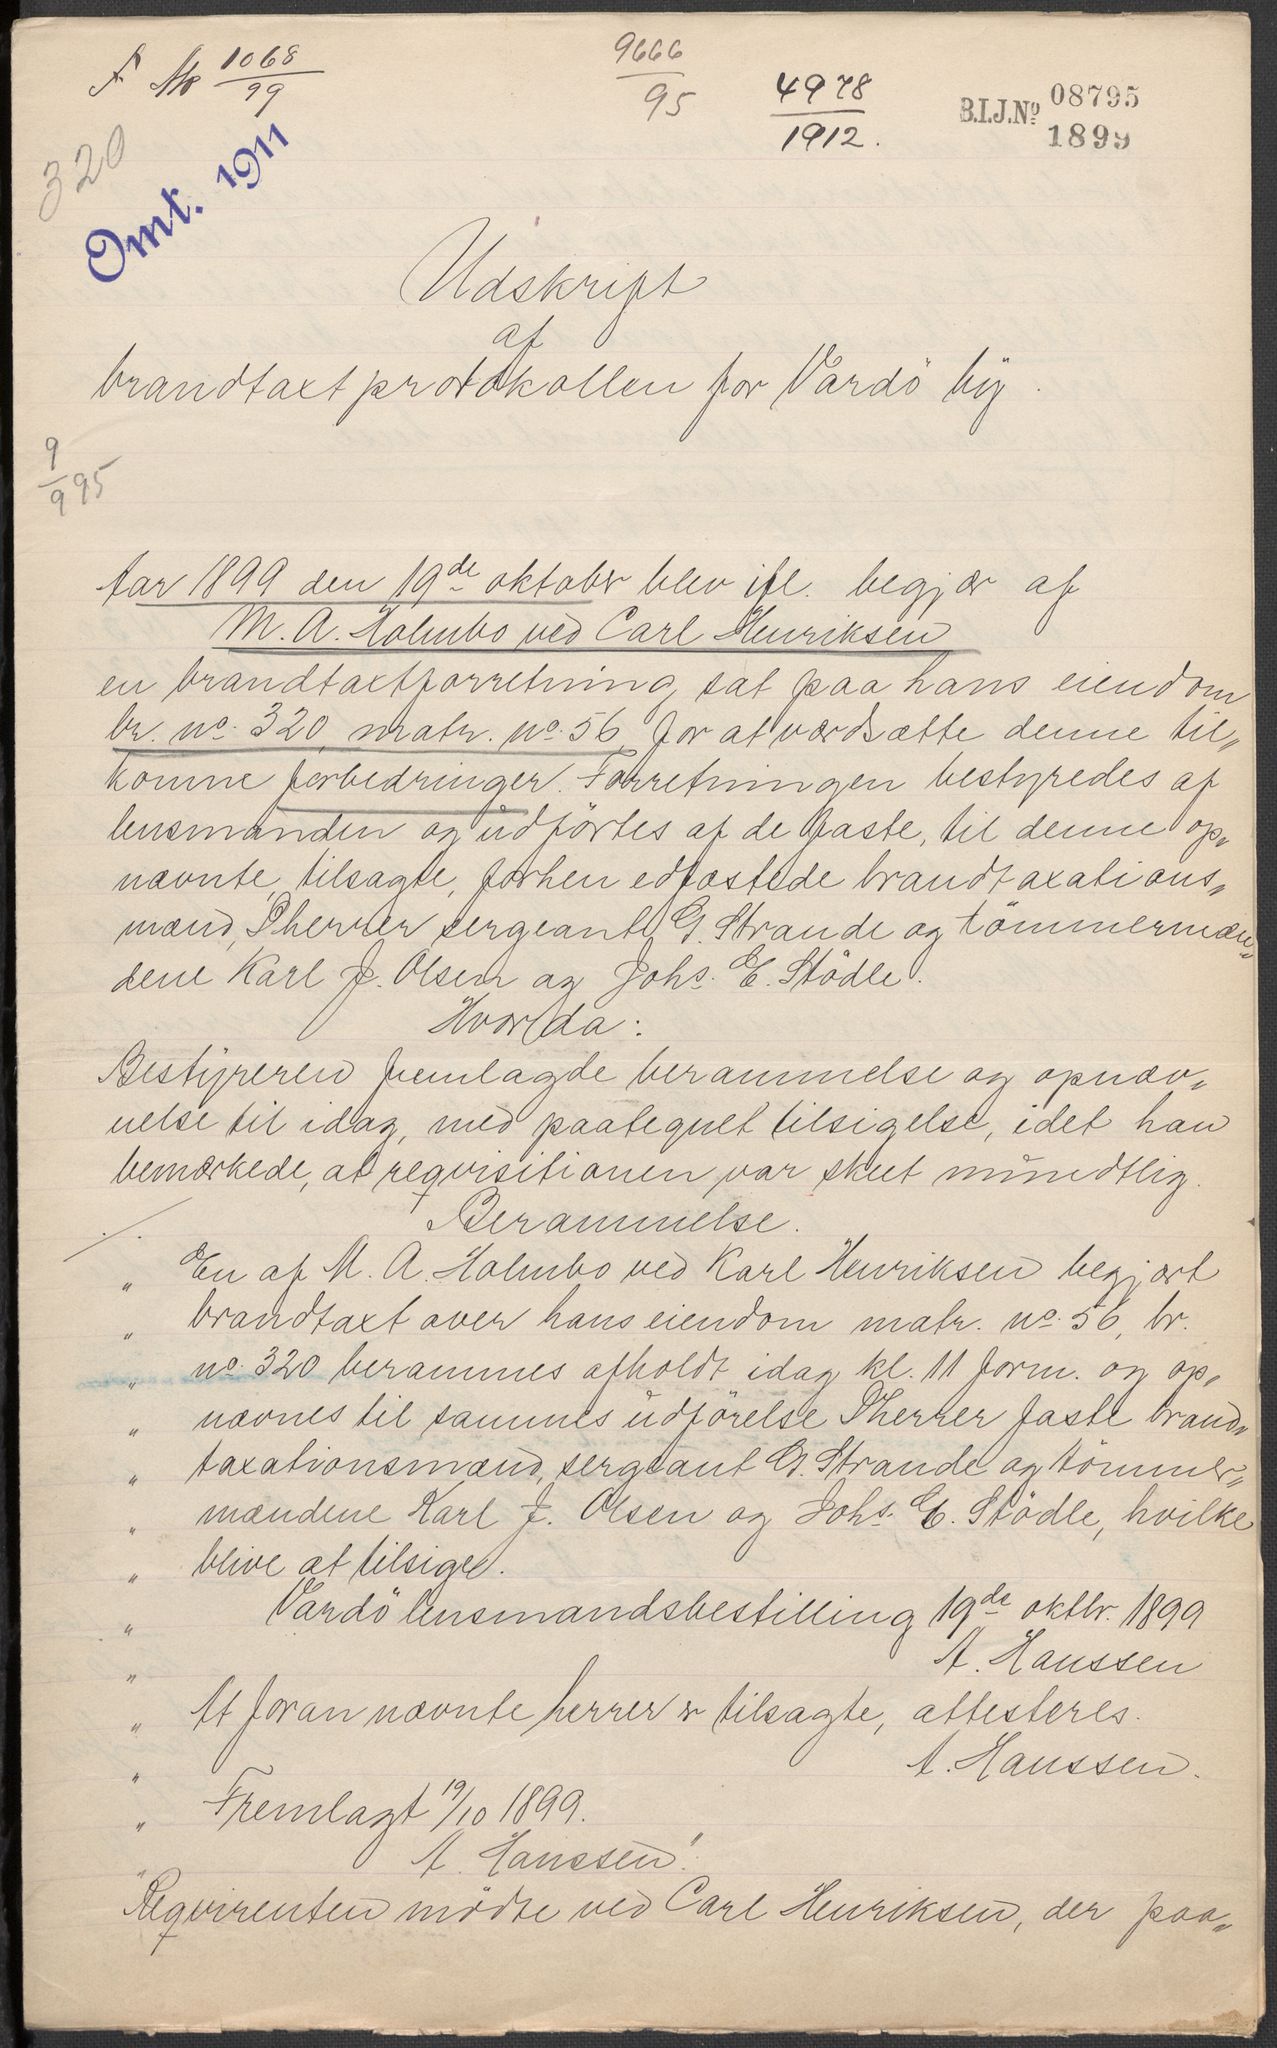 F No 1068/99
9666/95
4978/1912.
B.I.J.No 08795/1899
320
Omt. 1911
Udskrift
af
brandtaxtprotokollen for Vardö by.
9/9 95
Aar 1899 den 19de oktober blev ifl. begjær af
M. A. Holmbo ved Carl Henriksen
en brandtaxtforretning sat paa hans eiendom
br. no. 320, matr. no. 56 for at værdsætte denne til„
komne forbedringer. Forretningen bestyredes af
lensmanden og udförtes af de faste, til denne op„
nævnte, tilsagte, forhen edfæstede brandtaxations„
mænd, Dherrer sergeant G. Strande og tömmermæn„
dene Karl J. Olsen og Johs. E. Stödle.
Hvor da:
Bestyreren fremlagde berammelse og opnæv„
nelse til idag, med paategnet tilsigelse, idet han
bemærkede, at reqvisitionen var skeet mundtlig.
./. Berammelse.
„ En af M. A. Holmbo ved Karl Henriksen begjært
„ brandtaxt over hans eiendom matr. no. 56, br.
„ no. 320 berammes afholdt idag kl. 11 form. og op„
„ nævnes til sammes udförelse Dherrer faste brand„
„ taxationsmænd, sergeant G. Strande og tömmer„
„ mændene Karl J. Olsen og Johs. E. Stödle, hvilke
„ blive at tilsige.
„ Vardö lensmandsbestilling 19de oktbr. 1899
„ A. Hanssen
„ At foran nævnte herrer er tilsagte, attesteres.
„ A. Hanssen.
„ Fremlagt 19/10 1899.
„ A. Hanssen."
Reqvirenten mödte ved Carl Henriksen, der paa„